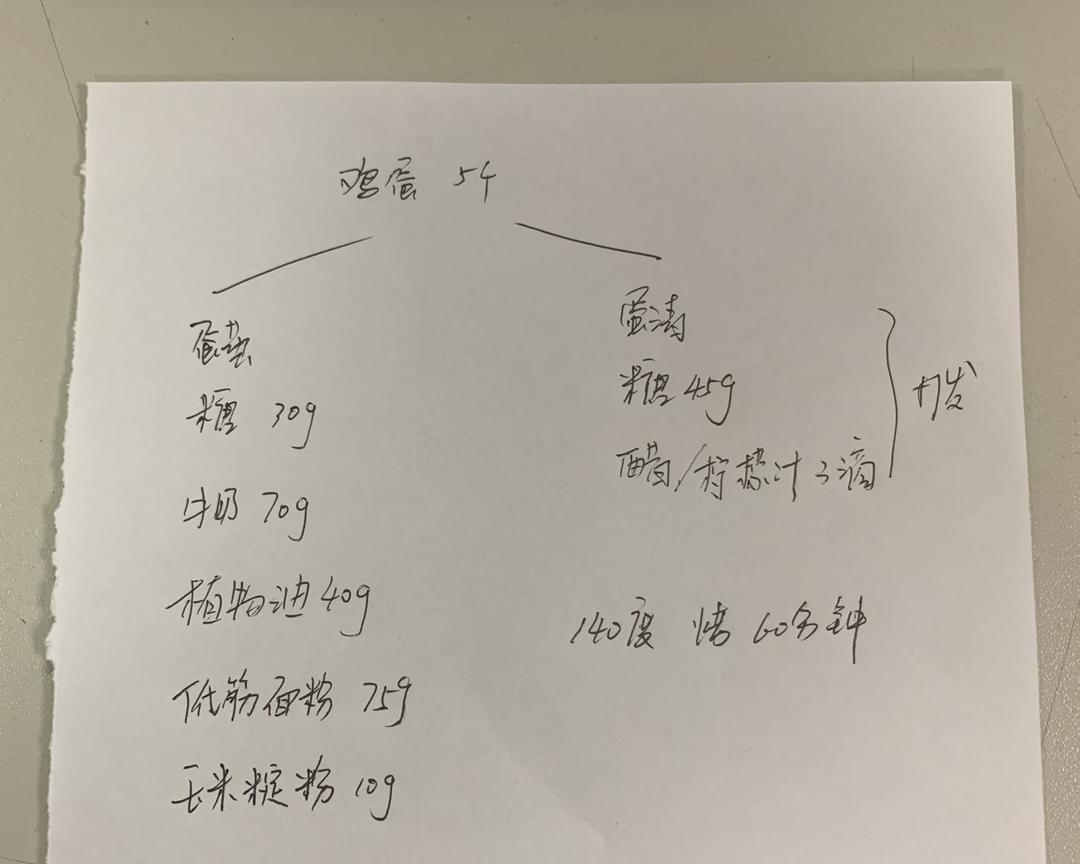 鸡蛋 5个
蛋黄
糖 30g
牛奶 70g
植物油 40g
低筋面粉 75g
玉米淀粉 10g
蛋清
糖 45g
醋/柠檬汁 3滴
打发
140度 烤 60分钟